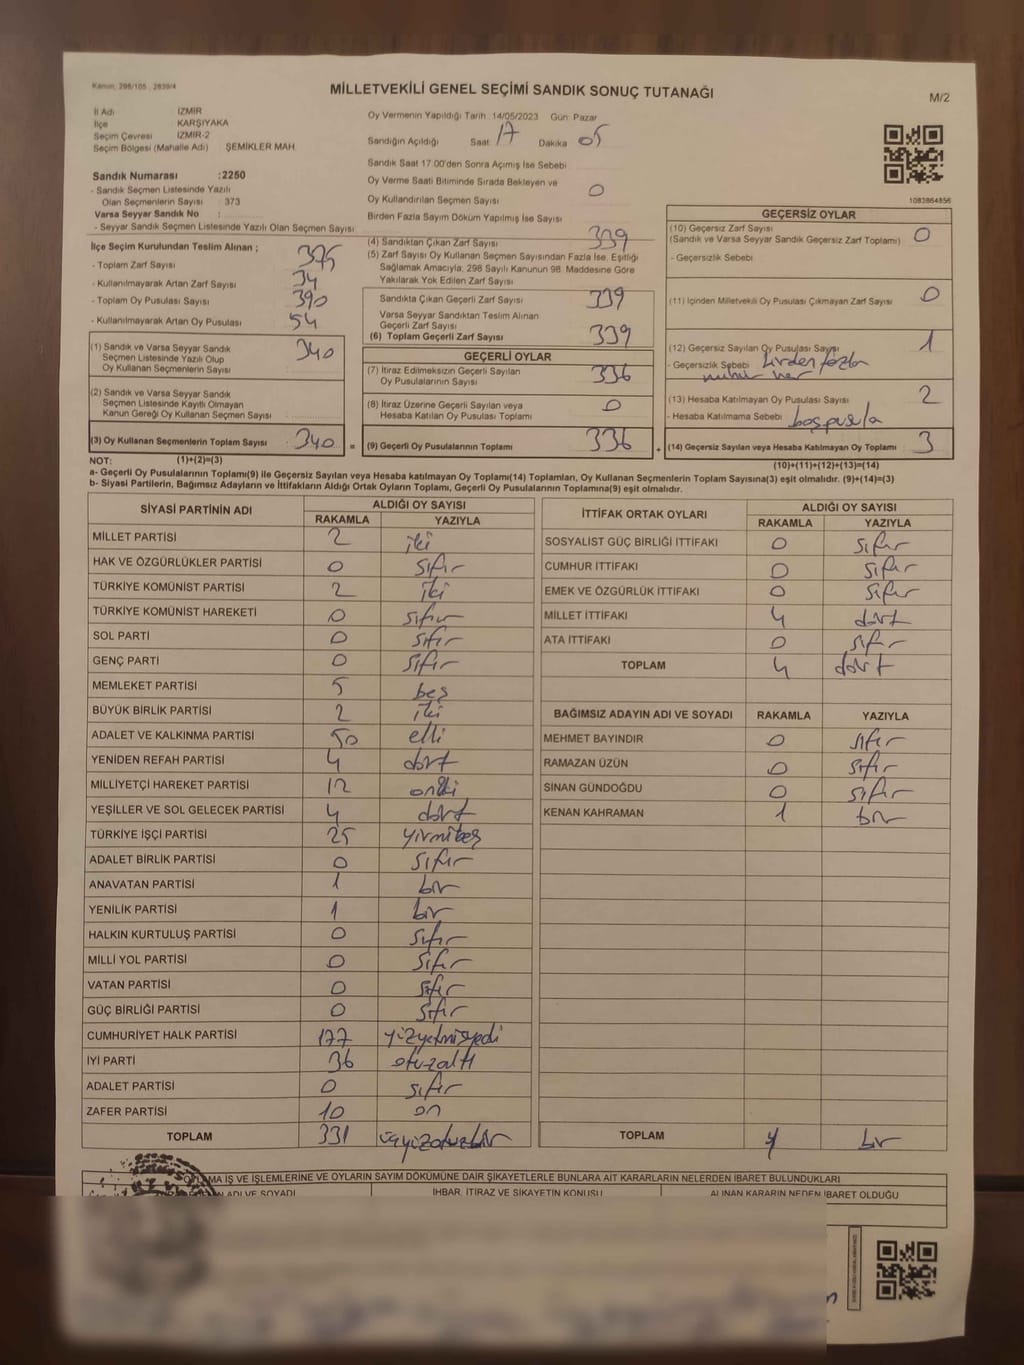 Kanun, 298/105 , 2839/4
MİLLETVEKİLİ GENEL SEÇİMİ SANDIK SONUÇ TUTANAĞI
M/2
İl Adı İZMİR
İlçe KARŞIYAKA
Seçim Çevresi İZMİR-2
Seçim Bölgesi (Mahalle Adı) ŞEMİKLER MAH.
Sandık Numarası :2250
- Sandık Seçmen Listesinde Yazılı
Olan Seçmenlerin Sayısı : 373
Varsa Seyyar Sandık No :
- Seyyar Sandık Seçmen Listesinde Yazılı Olan Seçmen Sayısı
Oy Vermenin Yapıldığı Tarih : 14/05/2023 Gün: Pazar
Sandığın Açıldığı Saat 17 Dakika 05
Sandık Saat 17:00'den Sonra Açımış İse Sebebi
Oy Verme Saati Bitiminde Sırada Bekleyen ve
Oy Kullandırılan Seçmen Sayısı 0
Birden Fazla Sayım Döküm Yapılmış İse Sayısı
1083864856
İlçe Seçim Kurulundan Teslim Alınan ;
- Toplam Zarf Sayısı 375
- Kullanılmayarak Artan Zarf Sayısı 34
- Toplam Oy Pusulası Sayısı 390
- Kullanılmayarak Artan Oy Pusulası 54
(1) Sandık ve Varsa Seyyar Sandık
Seçmen Listesinde Yazılı Olup
Oy Kullanan Seçmenlerin Sayısı : 340
(2) Sandık ve Varsa Seyyar Sandık
Seçmen Listesinde Kayıtlı Olmayan
Kanun Gereği Oy Kullanan Seçmen Sayısı
(3) Oy Kullanan Seçmenlerin Toplam Sayısı 340 =
(4) Sandıktan Çıkan Zarf Sayısı 339
(5) Zarf Sayısı Oy Kullanan Seçmen Sayısından Fazla İse, Eşitliği
Sağlamak Amacıyla, 298 Sayılı Kanunun 98. Maddesine Göre
Yakılarak Yok Edilen Zarf Sayısı
Sandıkta Çıkan Geçerli Zarf Sayısı 339
Varsa Seyyar Sandıktan Teslim Alınan
Geçerli Zarf Sayısı
(6) Toplam Geçerli Zarf Sayısı 339
GEÇERLİ OYLAR
(7) İtiraz Edilmeksizin Geçerli Sayılan
Oy Pusulalarının Sayısı 336
(8) İtiraz Üzerine Geçerli Sayılan veya
Hesaba Katılan Oy Pusulası Toplamı 0
(9) Geçerli Oy Pusulalarının Toplamı 336 +
GEÇERSİZ OYLAR
(10) Geçersiz Zarf Sayısı
(Sandık ve Varsa Seyyar Sandık Geçersiz Zarf Toplamı) 0
- Geçersizlik Sebebi
(11) İçinden Milletvekili Oy Pusulası Çıkmayan Zarf Sayısı 0
(12) Geçersiz Sayılan Oy Pusulası Sayısı 1
- Geçersizlik Sebebi birden fazla
mühür var
(13) Hesaba Katılmayan Oy Pusulası Sayısı 2
- Hesaba Katılmama Sebebi boş pusula
(14) Geçersiz Sayılan veya Hesaba Katılmayan Oy Toplamı 3
NOT: (1)+(2)=(3)
(10)+(11)+(12)+(13)=(14)
a- Geçerli Oy Pusulalarının Toplamı(9) ile Geçersiz Sayılan veya Hesaba katılmayan Oy Toplamı(14) Toplamları, Oy Kullanan Seçmenlerin Toplam Sayısına(3) eşit olmalıdır. (9)+(14)=(3)
b- Siyasi Partilerin, Bağımsız Adayların ve İttifakların Aldığı Ortak Oyların Toplamı, Geçerli Oy Pusulalarının Toplamına(9) eşit olmalıdır.
SİYASİ PARTİNİN ADI ALDIĞI OY SAYISI
RAKAMLA YAZIYLA
MİLLET PARTİSİ 2 iki
HAK VE ÖZGÜRLÜKLER PARTİSİ 0 sıfır
TÜRKİYE KOMÜNİST PARTİSİ 2 iki
TÜRKİYE KOMÜNİST HAREKETİ 0 sıfır
SOL PARTİ 0 sıfır
GENÇ PARTİ 0 sıfır
MEMLEKET PARTİSİ 5 beş
BÜYÜK BİRLİK PARTİSİ 2 iki
ADALET VE KALKINMA PARTİSİ 50 elli
YENİDEN REFAH PARTİSİ 4 dört
MİLLİYETÇİ HAREKET PARTİSİ 12 oniki
YEŞİLLER VE SOL GELECEK PARTİSİ 4 dört
TÜRKİYE İŞÇİ PARTİSİ 25 yirmibeş
ADALET BİRLİK PARTİSİ 0 sıfır
ANAVATAN PARTİSİ 1 bir
YENİLİK PARTİSİ 1 bir
HALKIN KURTULUŞ PARTİSİ 0 sıfır
MİLLİ YOL PARTİSİ 0 sıfır
VATAN PARTİSİ 0 sıfır
GÜÇ BİRLİĞİ PARTİSİ 0 sıfır
CUMHURİYET HALK PARTİSİ 177 yüzyetmişyedi
İYİ PARTİ 36 otuzaltı
ADALET PARTİSİ 0 sıfır
ZAFER PARTİSİ 10 on
TOPLAM 331 üçyüzotuzbir
İTTİFAK ORTAK OYLARI ALDIĞI OY SAYISI
RAKAMLA YAZIYLA
SOSYALİST GÜÇ BİRLİĞİ İTTİFAKI 0 sıfır
CUMHUR İTTİFAKI 0 sıfır
EMEK VE ÖZGÜRLÜK İTTİFAKI 0 sıfır
MİLLET İTTİFAKI 4 dört
ATA İTTİFAKI 0 sıfır
TOPLAM 4 dört
BAĞIMSIZ ADAYIN ADI VE SOYADI RAKAMLA YAZIYLA
MEHMET BAYINDIR 0 sıfır
RAMAZAN ÜZÜN 0 sıfır
SİNAN GÜNDOĞDU 0 sıfır
KENAN KAHRAMAN 1 bir
TOPLAM 1 bir
OYLAMA İŞ VE İŞLEMLERİNE VE OYLARIN SAYIM DÖKÜMÜNE DAİR ŞİKAYETLERLE BUNLARA AİT KARARLARIN NELERDEN İBARET BULUNDUKLARI
ADI VE SOYADI İHBAR, İTİRAZ VE ŞİKAYETİN KONUSU ALINAN KARARIN NEDEN İBARET OLDUĞU